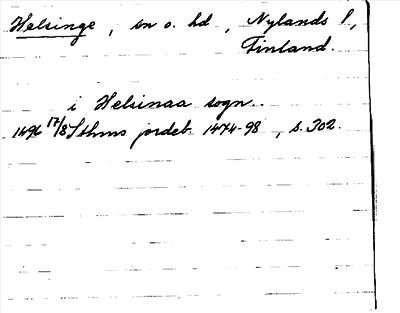 Helsinge, sn o. hd, Nylands l,
Finland.
i Helsinaa sogn..
1496 17/8 Sthms jordeb. 1474-98, s. 302.